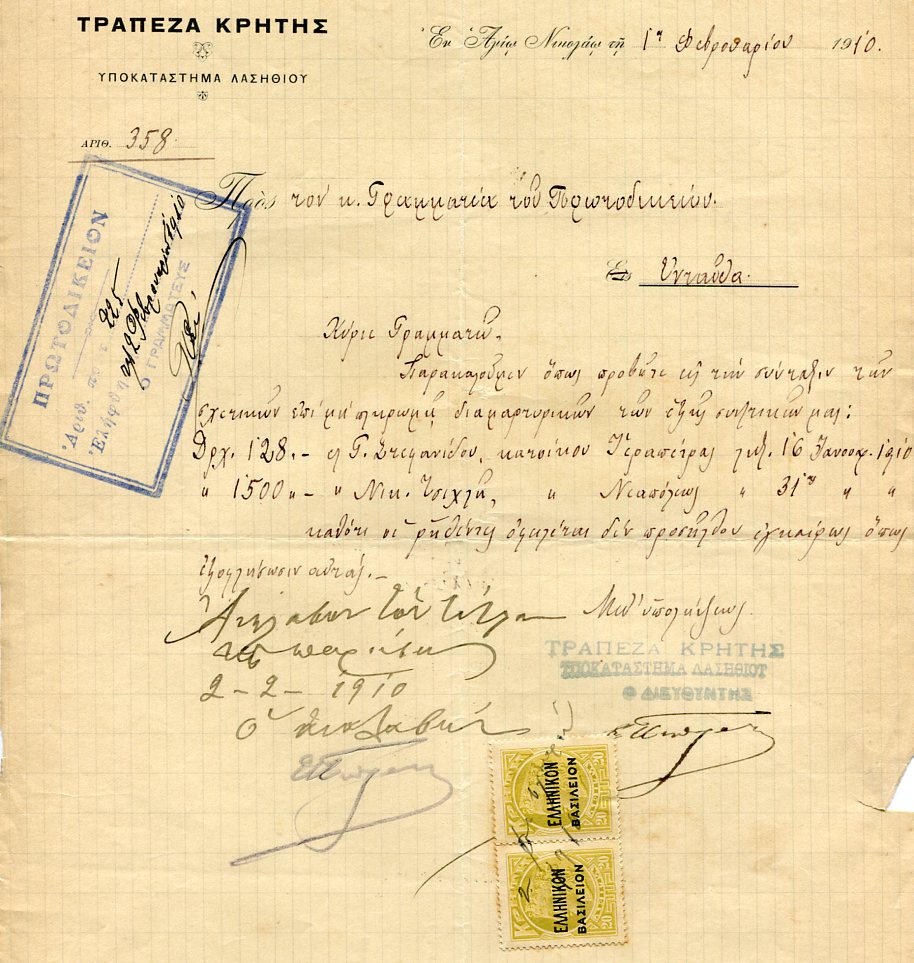 ΤΡΑΠΕΖΑ ΚΡΗΤΗΣ
ΥΠΟΚΑΤΑΣΤΗΜΑ ΛΑΣΗΘΙΟΥ
Ἐν Ἁγίῳ Νικολάῳ τῇ 1ῃ Φεβρουαρίου 1910.
ΑΡΙΘ. 358.
Πρὸς τον κ. Γραμματέα του Πρωτοδικείου.
Ἐνταῦθα.
ΠΡΩΤΟΔΙΚΕΙΟΝ
Ἀριθ. πρωτ. 225
Ἐλήφθη τῇ 2 Φεβρουαρίου 1910
Ο ΓΡΑΜΜΑΤΕΥΣ
Κύριε Γραμματεῦ,
Παρακαλοῦμεν ὅπως προβῆτε εἰς τὴν σύνταξιν τῶν
σχετικῶν επὶ μὴ πληρωμῇ διαμαρτυρικῶν των ἑξῆς συν/τικῶν μας:
Δρχ. 128.- Γ. Στεφανίδου, κατοίκου Ἱεραπέτρας λήξ. 16 Ἰανουαρ. 1910
" 1500 " - " Νικ. " Νεαπόλεως " 31ῃ " "
καθότι οἱ ῥηθέντες ὀφειλέται δὲν προσῆλθον ἐγκαίρως ὅπως
ἐξοφλήσωσιν αὐτάς.-
Μεθ' ὑπολήψεως.
ΤΡΑΠΕΖΑ ΚΡΗΤΗΣ
ΥΠΟΚΑΤΑΣΤΗΜΑ ΛΑΣΗΘΙΟΥ
Ο ΔΙΕΥΘΥΝΤΗΣ
2-2-1910
ΕΛΛΗΝΙΚΟΝ
ΒΑΣΙΛΕΙΟΝ
20 20
ΕΛΛΗΝΙΚΟΝ
ΒΑΣΙΛΕΙΟΝ
20 20